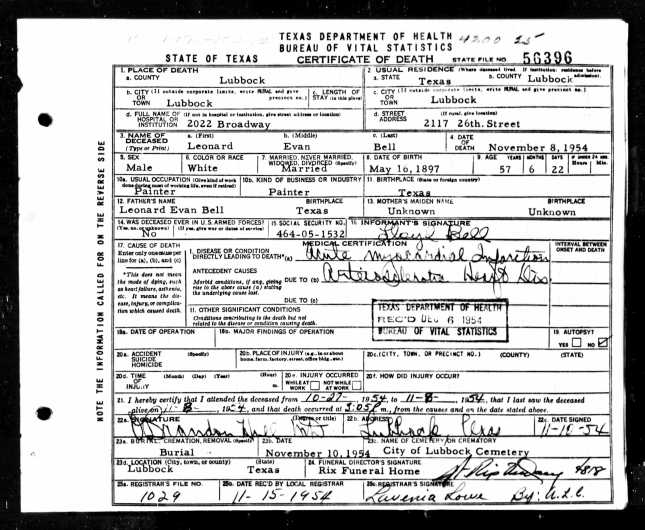 TEXAS DEPARTMENT OF HEALTH 4200 25
BUREAU OF VITAL STATISTICS
STATE OF TEXAS CERTIFICATE OF DEATH STATE FILE NO. 56396
1. PLACE OF DEATH
a. COUNTY
Lubbock
2. USUAL RESIDENCE (Where deceased lived. If institution: residence before admission)
a. STATE Texas b. COUNTY Lubbock
b. CITY (If outside corporate limits, write RURAL and give precinct no.)
OR
TOWN Lubbock
c. LENGTH OF
STAY (in this place)
c. CITY (If outside corporate limits, write RURAL and give precinct no.)
OR
TOWN Lubbock
d. FULL NAME OF (If not in hospital or institution, give street address or location)
HOSPITAL OR
INSTITUTION 2022 Broadway
d. STREET (If rural, give location)
ADDRESS 2117 26th. Street
3. NAME OF DECEASED (Type or Print)
a. (First) Leonard
b. (Middle) Evan
c. (Last) Bell
4. DATE OF DEATH November 8, 1954
5. SEX
Male
6. COLOR OR RACE
White
7. MARRIED, NEVER MARRIED, WIDOWED, DIVORCED (Specify)
Married
8. DATE OF BIRTH
May 16, 1897
9. AGE YEARS MONTHS DAYS IF UNDER 24 HRS. Hours Min.
57 6 22
10a. USUAL OCCUPATION (Give kind of work done during most of working life, even if retired)
Painter
10b. KIND OF BUSINESS OR INDUSTRY
Painter
11. BIRTHPLACE (State or foreign country)
Texas
12. FATHER'S NAME BIRTHPLACE
Leonard Evan Bell Texas
13. MOTHER'S MAIDEN NAME BIRTHPLACE
Unknown Unknown
14. WAS DECEASED EVER IN U.S. ARMED FORCES?
(Yes, no, or unknown) (If yes, give war or dates of service)
No
15. SOCIAL SECURITY NO.
464-05-1532
16. INFORMANT'S SIGNATURE
Bell
17. CAUSE OF DEATH
Enter only one cause per line for (a), (b), and (c)
*This does not mean the mode of dying, such as heart failure, asthenia, etc. It means the disease, injury, or complication which caused death.
MEDICAL CERTIFICATION
INTERVAL BETWEEN ONSET AND DEATH
I. DISEASE OR CONDITION
DIRECTLY LEADING TO DEATH* (a) Acute myocardial Infarction
ANTECEDENT CAUSES
Morbid conditions, if any, giving rise to the above cause (a) stating the underlying cause last.
DUE TO (b) Arteriosclerotic Heart Dis.
DUE TO (c)
II. OTHER SIGNIFICANT CONDITIONS
Conditions contributing to the death but not related to the disease or condition causing death.
TEXAS DEPARTMENT OF HEALTH
REC'D DEC 6 1954
BUREAU OF VITAL STATISTICS
18a. DATE OF OPERATION
18b. MAJOR FINDINGS OF OPERATION
19. AUTOPSY?
YES NO
20a. ACCIDENT SUICIDE HOMICIDE (Specify)
20b. PLACE OF INJURY (e.g., in or about home, farm, factory, street, office bldg., etc.)
20c. (CITY, TOWN, OR PRECINCT NO.) (COUNTY) (STATE)
20d. TIME OF INJURY (Month) (Day) (Year) (Hour) m.
20e. INJURY OCCURRED
WHILE AT WORK NOT WHILE AT WORK
20f. HOW DID INJURY OCCUR?
21. I hereby certify that I attended the deceased from 10-27- 1954 to 11-8-, 1954, that I last saw the deceased
alive on 11-8-, 1954, and that death occurred at 3:05P m., from the causes and on the date stated above.
22a. SIGNATURE (Degree or title)
22b. ADDRESS Lubbock Texas
22c. DATE SIGNED
11-10-54
23a. BURIAL, CREMATION, REMOVAL (Specify)
Burial
23b. DATE
November 10, 1954
23c. NAME OF CEMETERY OR CREMATORY
City of Lubbock Cemetery
23d. LOCATION (City, town, or county) (State)
Lubbock Texas
24. FUNERAL DIRECTOR'S SIGNATURE
Rix Funeral Home 4818
25a. REGISTRAR'S FILE NO.
1029
25b. DATE REC'D BY LOCAL REGISTRAR
11-15-1954
25c. REGISTRAR'S SIGNATURE
Lavenia Lowe By: A.L.C.
NOTE THE INFORMATION CALLED FOR ON THE REVERSE SIDE